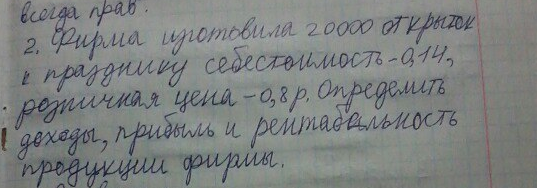 всегда прав.
2. Фирма изготовила 20000 открыток
к празднику себестоимость-0,14,
розничная цена-0,8р. Определить
доходы, прибыль и рентабельность
продукции фирмы.